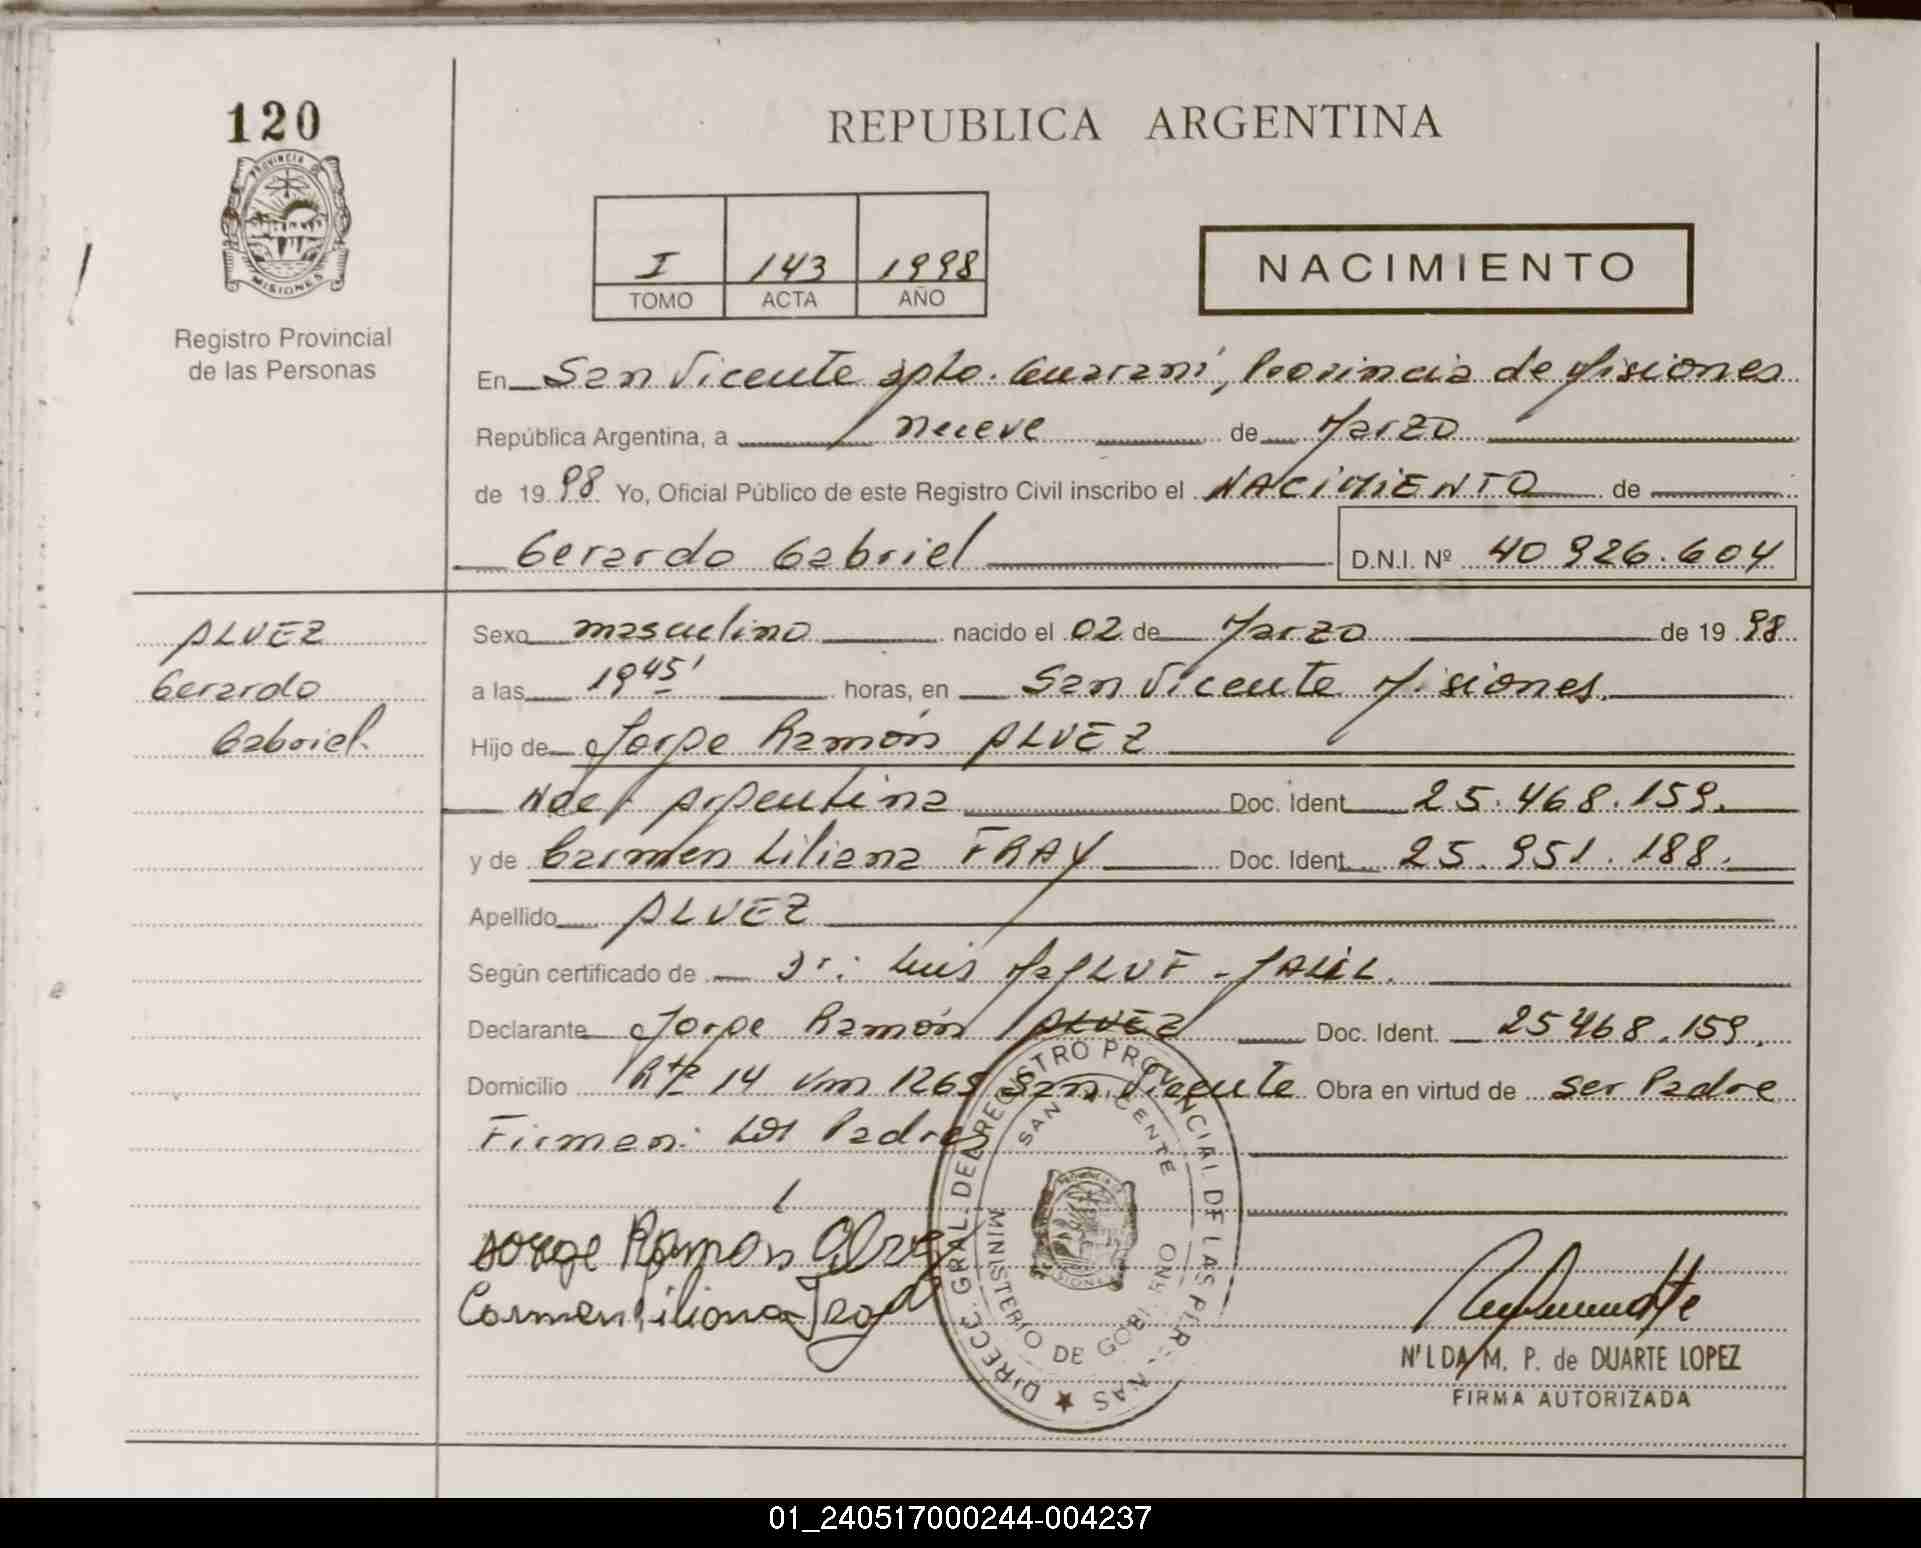 120
PROVINCIA DE
MISIONES
Registro Provincial
de las Personas
REPUBLICA ARGENTINA
I 143 1998
TOMO ACTA AÑO
NACIMIENTO
En San Vicente Dpto. Guaraní, Provincia de Misiones
República Argentina, a nueve de Marzo
de 1998 Yo, Oficial Público de este Registro Civil inscribo el NACIMIENTO de
Gerardo Gabriel D.N.I. Nº 40 926.604
ALVEZ
Gerardo
Gabriel.
Sexo masculino nacido el 02 de Marzo de 1998
a las 19 45' horas, en San Vicente Misiones.
Hijo de Jorge Ramón ALVEZ
Nac. Argentina Doc. Ident. 25.468.159.
y de Carmen Liliana FRAY Doc. Ident. 25.951.188.
Apellido ALVEZ
Según certificado de Dr: Luis JALIL.
Declarante Jorge Ramón ALVEZ Doc. Ident. 25468.159.
Domicilio Rta 14 Km 1265 San Vicente Obra en virtud de ser Padre
Firman: Los Padres
Jorge Ramon Alvez
Carmen Liliana
DIRECC. GRAL. DEL REGISTRO PROVINCIAL DE LAS PERSONAS
SAN VICENTE
MINISTERIO DE GOBIERNO
N'LDA M. P. de DUARTE LOPEZ
FIRMA AUTORIZADA
01_240517000244-004237